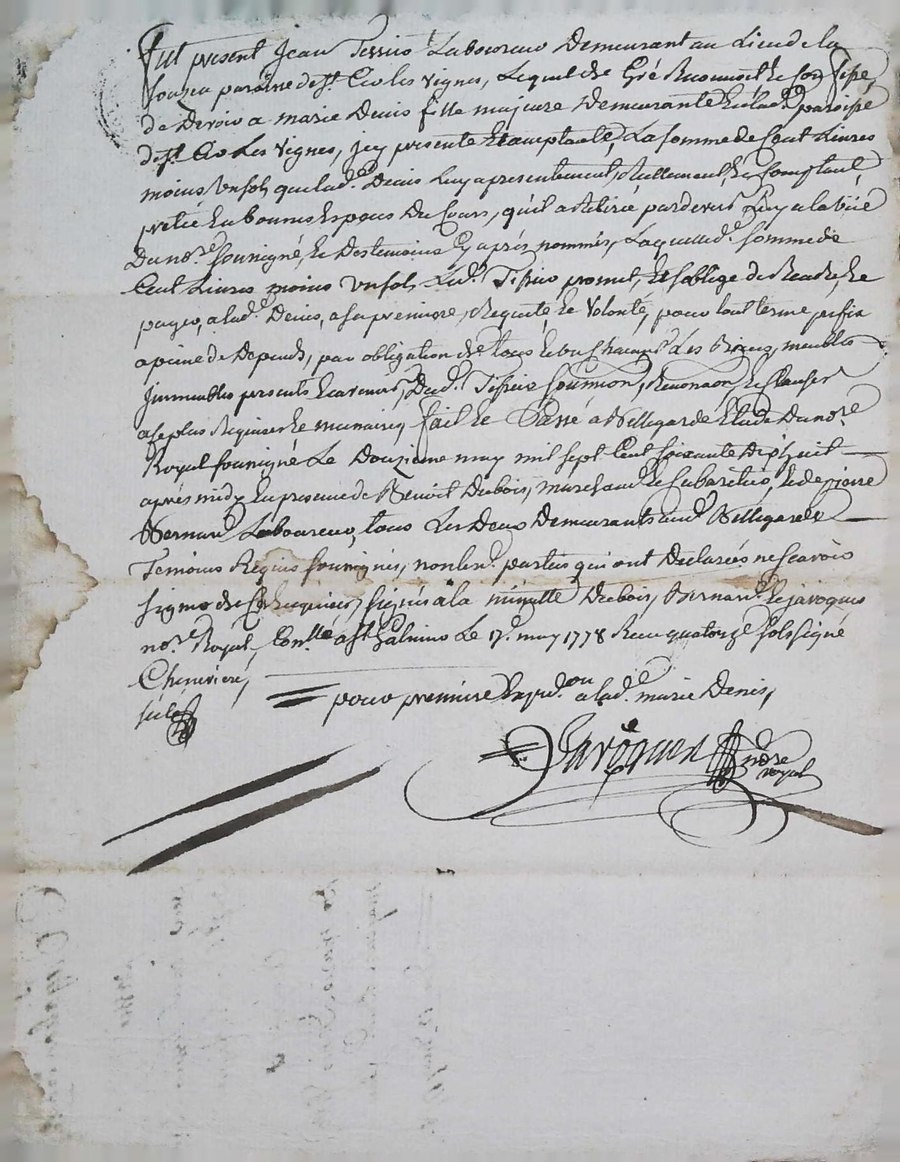 Fut present Jean Tessier Laboureur Demeurant au Lieu de la
paroisse de st. Cir les vignes, Lequel de Gré Reconnoit et Confesse
de Devoir a marie Denis fille majeure Demeurante en lad. paroisse
de st. Cir Les vignes, jcy presente et acceptante, La somme de Cent Livres
moins un sol, que lad. Denis Luy a presentement, Reellement, et Comptant
preté en bonnes Especes Du Cours, qu'il a Retirée pardevers Luy a la vüe
Du nore. soussigné, et Des temoins cy après nommés, Laquelle d. somme de
Cent Livres moins un sol, Led. Tissier promet, et s'oblige de Rendre, et
payer, a lad. Denis, a sa premiere, Requete, et Volonté, pour tout terme prefix
a peine de Depends, par obligation de tous et un Chacuns Ses Biens, meubles
jmmeubles presents et avenir, Dud. Tissier soumission, Renonciation, et Clauses
a ce plus Requises et necessaires, fait et Passé à Bellegarde Etude Du nore.
Royal soussigné Le Douzieme may mil sept Cent soixante Dix huit
après midy En presence de Benoit Dubois, marchand et Cabaretier, et de pierre
Bernard Laboureur, tous Les Deux Demeurants aud. Bellegarde
Temoins Requis soussignés, non les d. parties qui ont Declarées ne sçavoir
signer de Ce Requises, signés a la minutte Dubois, Bernard, et javoques
nore. Royal, Conllé a st. Galmier Le 17e. may 1778 Reçu quatorze sols signé
Chenevieré,
pour premiere Expedon. a lad. marie Denis,
Javoques nore
royal